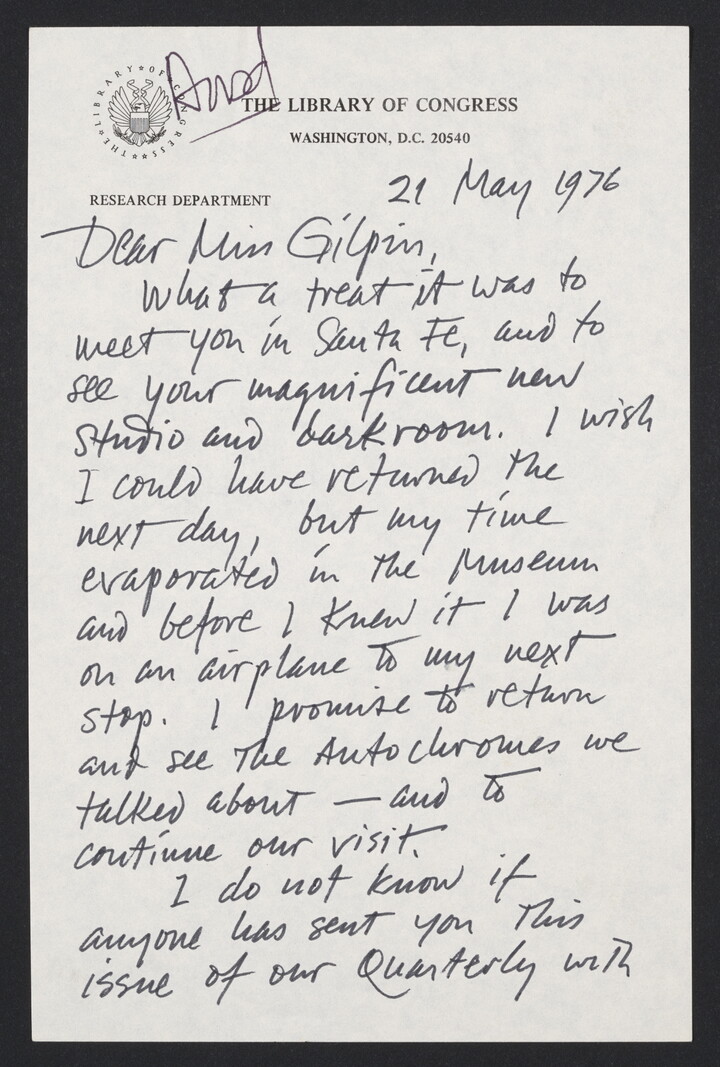 THE LIBRARY OF CONGRESS
Ansd
THE LIBRARY OF CONGRESS
WASHINGTON, D.C. 20540
RESEARCH DEPARTMENT
21 May 1976
Dear Miss Gilpin,
What a treat it was to
meet you in Santa Fe, and to
see your magnificent new
studio and darkroom. I wish
I could have returned the
next day, but my time
evaporated in the Museum
and before I knew it I was
on an airplane to my next
stop. I promise to return
and see the Autochromes we
talked about — and to
continue our visit.
I do not know if
anyone has sent you this
issue of our Quarterly with